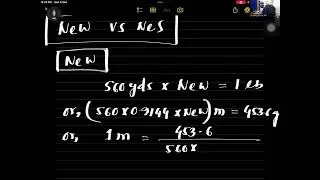 New vs Nes
New
560 yds × New = 1 lb
or, (560×0.9144×New) m = 453.6g
or, 1m = 453.6
560×